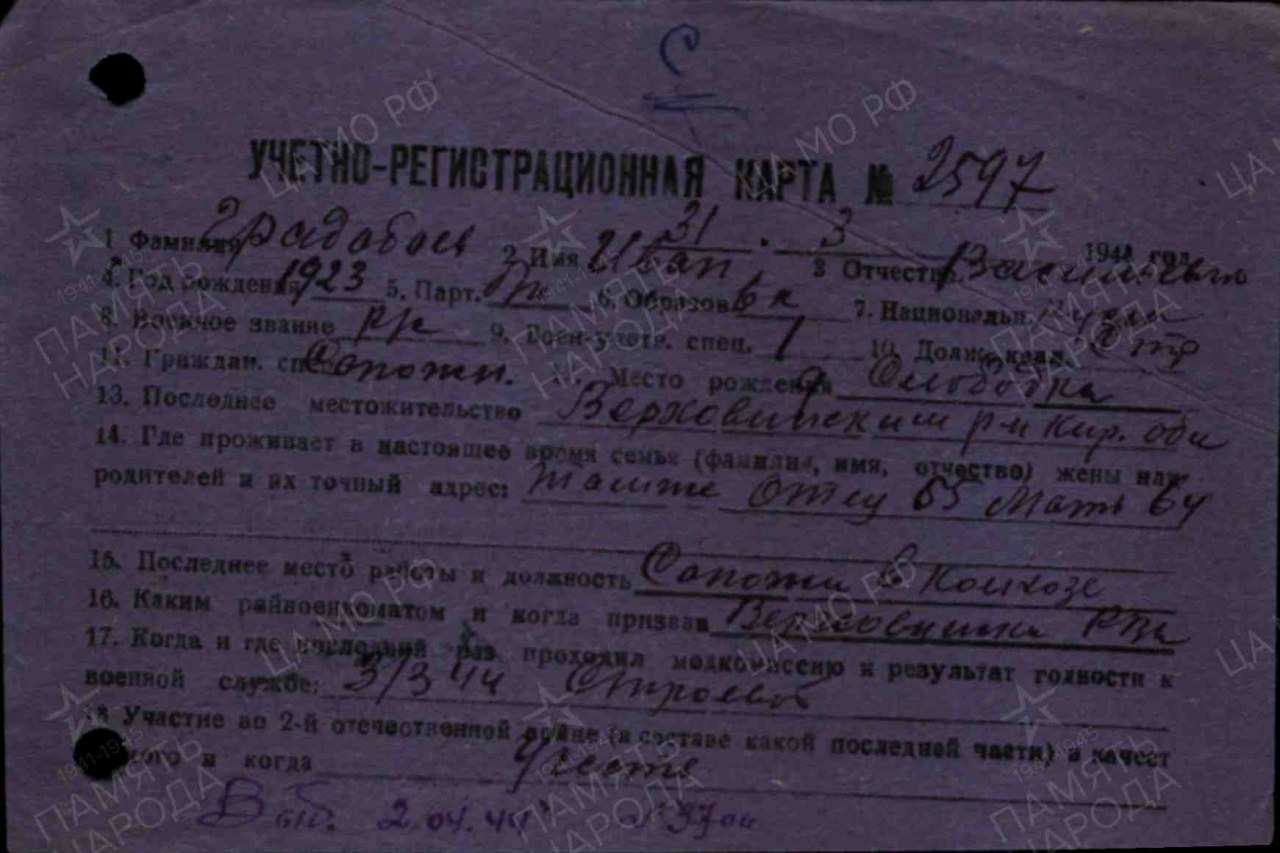 С
УЧЕТНО-РЕГИСТРАЦИОННАЯ КАРТА № 2597
31 . 3 1944 год
1 Фамилия Градобоев 2. Имя Иван 3 Отчество Васильевич
4. Год рождения 1923 5. Парт. 6. Образов. 6 к 7. Национальн.
8. Военное звание кр 9. Воен-учетн. спец. 1 10. Долж. квал. Стр
11. Граждан. сп Сапожн. Место рождения Слободка
13. Последнее местожительство Верховинский р-н Кир. обл
14. Где проживает в настоящее время семья (фамилия, имя, отчество) жены или
родителей и их точный адрес: Там же Отец 65 Мать 64
15. Последнее место работы и должность Сапожн в Колхозе
16. Каким райвоенкоматом и когда призван Верховинским РВК
17. Когда и где последний раз проходил медкомиссию и результат годности к
военной службе: 3/3 44 Строевой
18 Участие во 2-й отечественной войне (в составе какой последней части) в качест
кого и когда
Выб. 2.04.44
ЦА МО РФ
ПАМЯТЬ НАРОДА
1941-1945